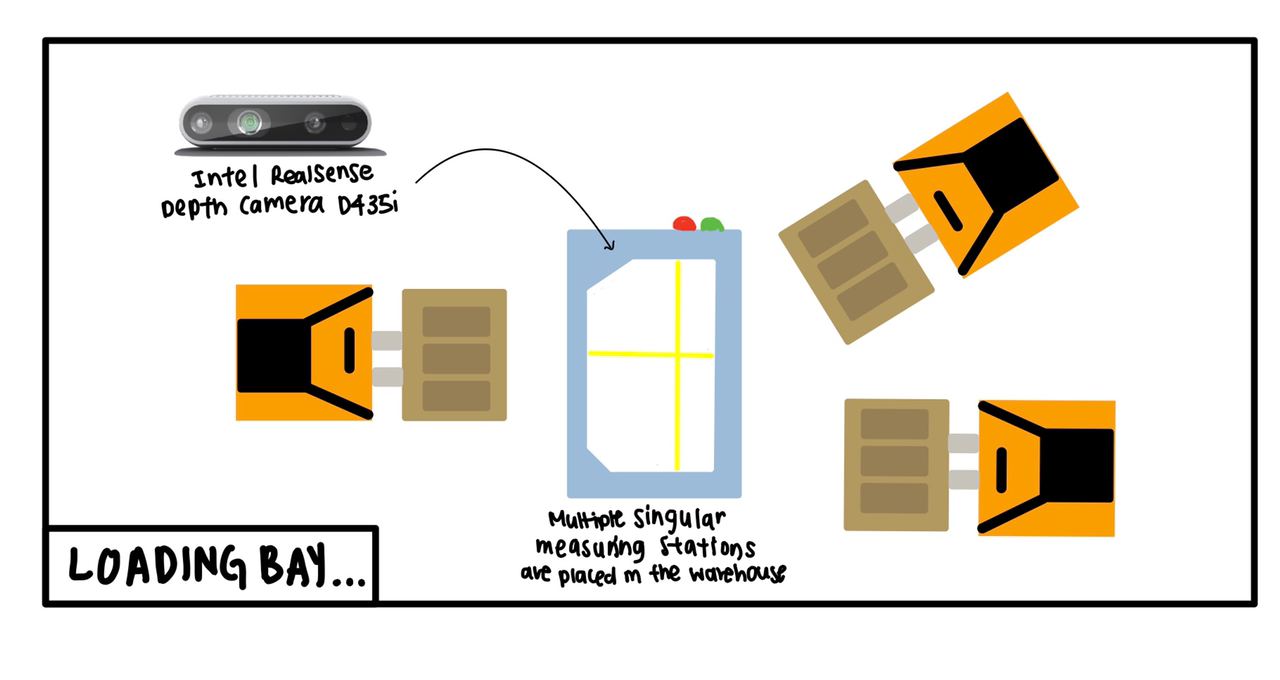 Intel RealSense
Depth Camera D435i
Multiple Singular
measuring Stations
are placed in the warehouse
LOADING BAY...